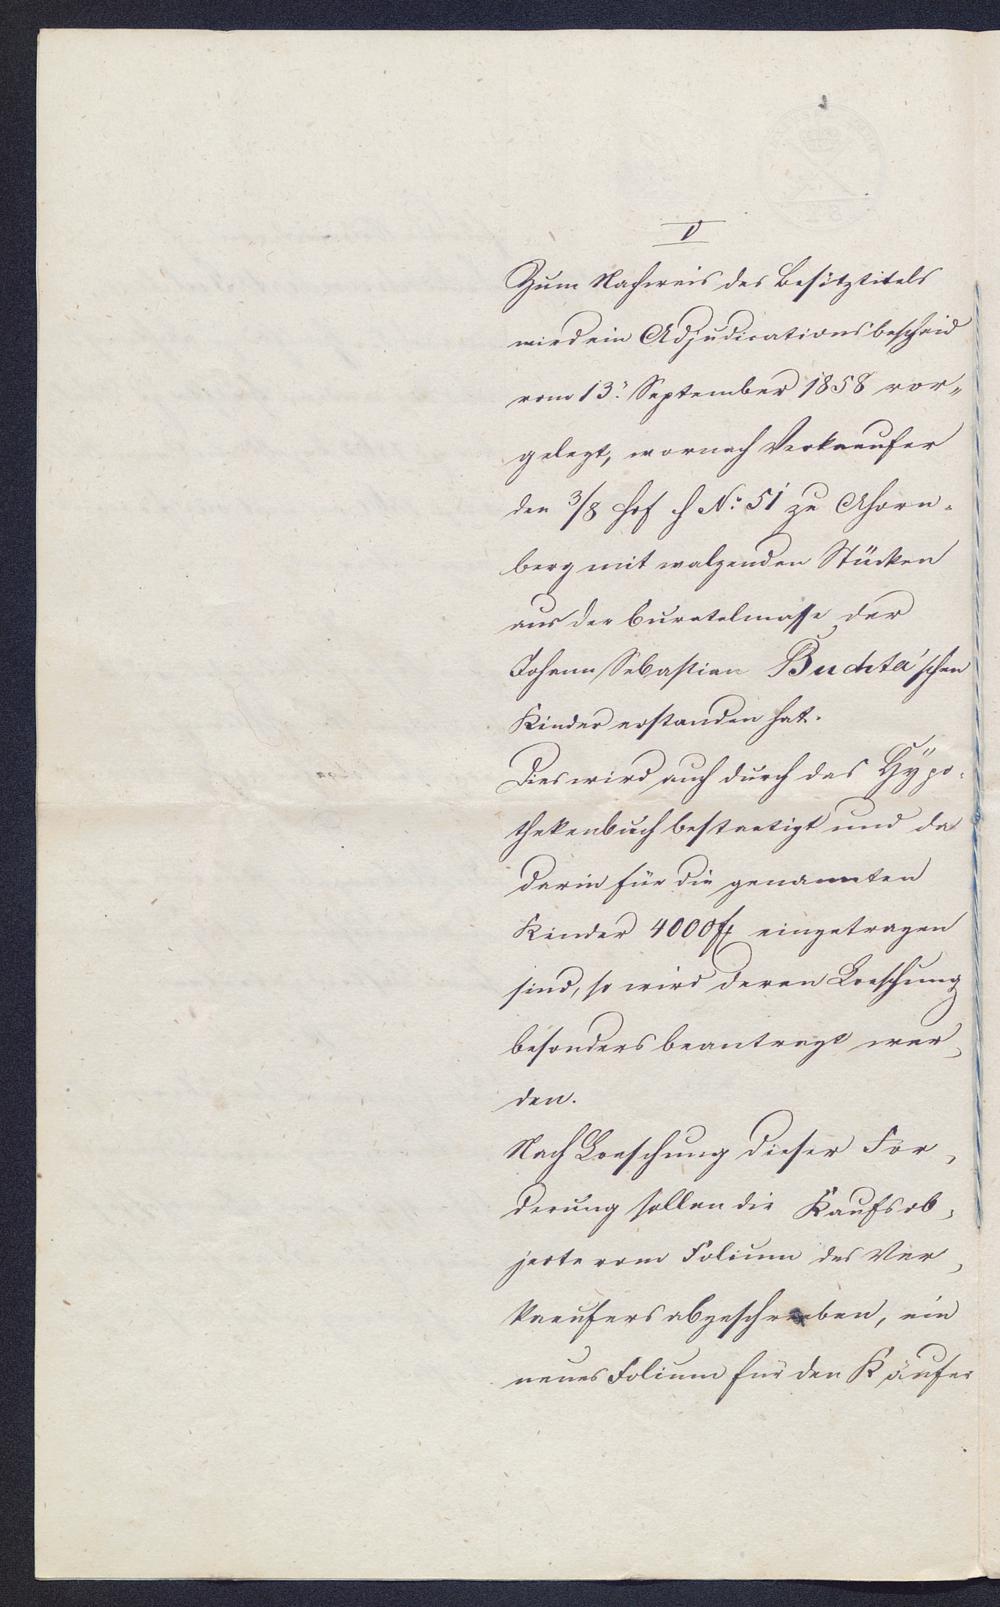 V
Zum Nachweis des Besitztitels
wird ein Adjudicationsbescheid
vom 13. September 1858 vor„
gelegt, wornach Verkaeufer
den 3/8 Hof H No. 51 zu Ahorn„
berg mit walzenden Stücken
aus der Curatelmasse der
Johann Sebastian Buchta'schen
Kinder erstanden hat.
Dies wird auch durch das Hypo„
thekenbuch bestaetigt und da
darin für die genannten
Kinder 4000 fl eingetragen
sind, so wird deren Loeschung
besonders beantragt wer„
den.
Nach Loeschung dieser For„
derung sollen die Kaufsob„
jecte vom Folium des Ver„
kaeufers abgeschrieben, ein
neues Folium für den Käufer